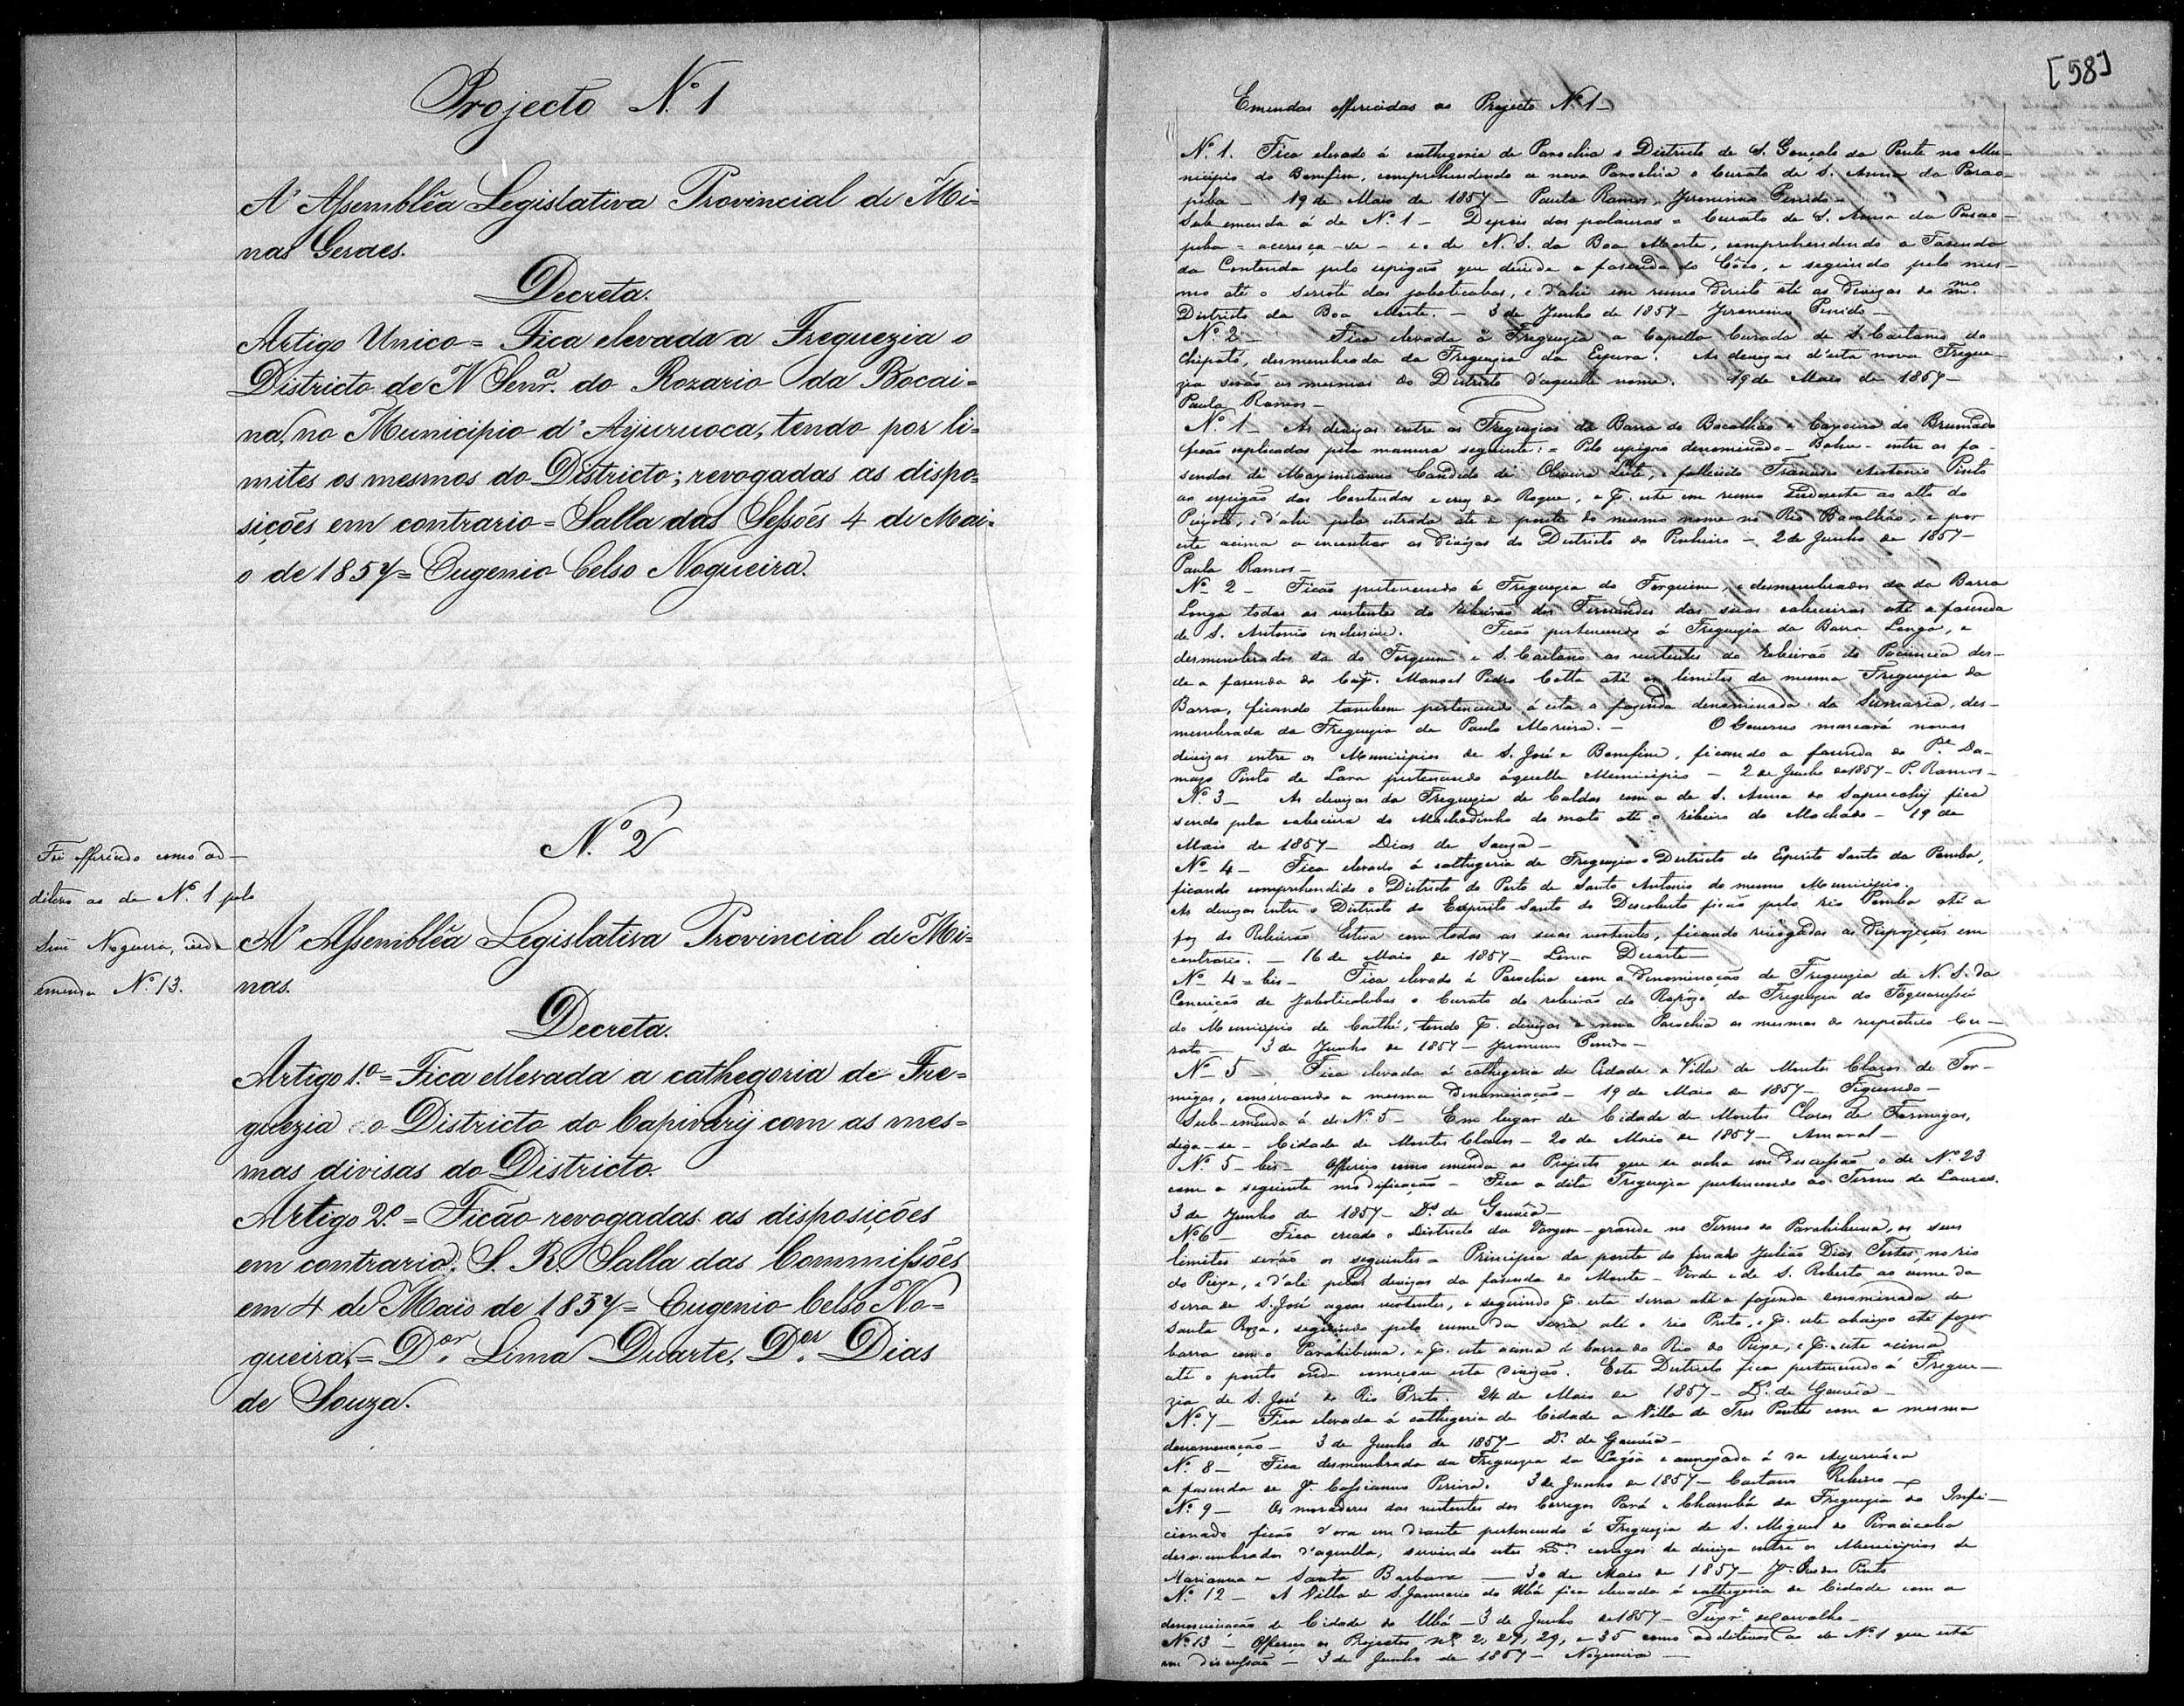 Projecto N.º 1
A' Assemblêa Legislativa Provincial de Mi=
nas Geraes.
Decreta.
Artigo Unico = Fica elevada a Freguezia o
Districto de N Senr.ª do Rozario da Bocai=
na, no Municipio d'Ayuruoca, tendo por li=
mites os mesmos do Districto; revogadas as dispo=
sições em contrario = Salla das Sessões 4 de Mai=
o de 1857 = Eugenio Celso Nogueira.
N.º 2
Foi offerecido como ad-
ditivo ao de Nº 1 pelo
Snr Nogueira, vide
emenda Nº 13.
A' Assemblêa Legislativa Provincial de Mi=
nas.
Decreta.
Artigo 1.º = Fica ellevada a cathegoria de Fre=
guezia o Districto do Capivary com as mes=
mas divisas do Districto.
Artigo 2.º = Ficão revogadas as disposições
em contrario. S. R. Salla das Commissões
em 4 de Maio de 1857 = Eugenio Celso No=
gueira, = D.or Lima Duarte, D.or Dias
de Souza.
[58]
Emendas offerecidas ao Projecto Nº 1 -
Nº 1. Fica elevado á cathegoria de Parochia o Districto de S. Gonçalo da Ponte no Mu-
nicipio do Bomfim, comprehendendo a nova Parochia o Curato de S. Anna da Parao-
peba - 19 de Maio de 1857 - Paula Ramos, Jeronimo Penido -
Sub emenda á de Nº 1 - Depois das palavras = Curato de S. Anna da Parao-
peba = acresça-se - e o de N. S. da Boa Morte, comprehendendo a Fazenda
da Contenda pelo espigão que divide a fasenda do Côco, e seguindo pelo mes-
mo até o serrote das jaboticabas, e d'ahi em rumo direito até as divizas do mmo.
Districto da Boa Morte. - 3 de Junho de 1857 - Jeronimo Penido -
Nº 2 - Fica elevada á Freguezia a Capella Curada de S. Caetano do
Chopotó, desmembrada da Freguezia da Espera. As divizas d'esta nova Fregue-
zia serão as mesmas do Districto d'aquelle nome. 19 de Maio de 1857 -
Paula Ramos -
Nº 1 - As divizas entre as Freguezias da Barra do Bacalháo e Capoeira do Brumado
ficão explicadas pela maneira seguinte: = Pelo espigão denominado - - entre as fa-
sendas de Maximiano Candido de Oliveira Leite, e fallecido Francisco Antonio Pinto
ao espigão das Contendas e cruz do Roque, e p. este em rumo ao alto do
, e d'ahi pela estrada até a ponte do mesmo nome no Rio Bacalháo, e por
este acima a encontrar as divizas do Districto do Pinheiro - 2 de Junho de 1857 -
Paula Ramos -
Nº 2 - Ficão pertencendo á Freguezia do Forquim, e desmembrados da da Barra
Longa todas as vertentes do ribeirão dos Fernandes das suas cabeceiras até a fasenda
de S. Antonio inclusive. Ficão pertencendo á Freguezia da Barra Longa, e
desmembrados da do Forquim e S. Caetano as vertentes do ribeirão do des-
de a fasenda do Cap. Manoel Pedro Cotta até os limites da mesma Freguezia da
Barra, ficando tambem pertencendo á esta a fazenda denominada da Sismaria, des-
membrada da Freguezia de Paulo Moreira. - O Governo marcará novas
divizas entre os Municipios de S. José e Bomfim, ficando a fasenda do Pe. Da-
mazo Pinto de Lara pertencendo áquelle Municipio - 2 de Junho de 1857 - P. Ramos -
Nº 3 - As divizas da Freguezia de Caldas com a de S. Anna do Sapucahy fica
sendo pela cabeceira do Machadinho do mato até o ribeiro do Machado - 19 de
Maio de 1857 - Dias de Souza -
Nº 4 - Fica elevado á cathegoria de Freguezia o Districto do Espirito Santo da Pomba,
ficando comprehendido o Districto do Porto de Santo Antonio do mesmo Municipio.
As divizas entre o Districto do Espirito Santo do Descoberto ficão pelo rio Pomba até a
foz do Ribeirão Estiva com todas as suas vertentes, ficando revogadas as disposições em
contrario. - 16 de Maio de 1857 - Lima Duarte -
Nº 4 = bis - Fica elevado á Parochia com a denominação de Freguezia de N. S. da
Conceição de Jaboticatubas o Curato do ribeirão do Rapozo da Freguezia do Taquarussú
do Municipio de Caethé, tendo p. divizas a nova Parochia as mesmas do respectivo Cu-
rato - 3 de Junho de 1857 - Jeronimo Penido -
Nº 5 - Fica elevada á cathegoria de Cidade a Villa de Montes Claros de For-
migas, conservando a mesma denominação - 19 de Maio de 1857 - Figueiredo -
Sub-emenda á de Nº 5 - Em lugar de Cidade de Montes Claros de Formigas,
diga-se - Cidade de Montes Claros - 20 de Maio de 1857 - Amaral -
Nº 5 - bis - Offereço como emenda ao Projecto que se acha em discussão o de Nº 23
com a seguinte modificação - Fica a dita Freguezia pertencendo ao Termo de Lavras.
3 de Junho de 1857 - D.or de Gouvêa -
Nº 6 - Fica creado o Districto da Vargem-grande no Termo do Parahibuna, os seus
limites serão os seguintes = Principia da ponte do finado Julião Dias Tostes, no rio
do Peixe, e d'ali pelas divizas da fasenda do Monte-Verde e de S. Roberto ao cume da
serra de S. José agoas vertentes, e seguindo p. esta serra até a fazenda denominada de
Santa Roza, seguindo pelo cume da serra até o rio Preto, e p. este abaixo até fazer
barra com o Parahibuna, e p. este acima á barra do Rio do Peixe, e p. este acima
até o ponto onde começou esta divizão. Este Districto fica pertencendo á Fregue-
zia de S. José do Rio Preto. 24 de Maio de 1857 - D.or de Gouvêa -
Nº 7 - Fica elevada á cathegoria de Cidade a Villa de Tres Pontas com a mesma
denominação - 3 de Junho de 1857 - D.or de Gouvêa -
Nº 8 - Fica desmembrada da Freguezia da Lagôa e annexada á da Ayuruoca
a fasenda de Je. Cassianno Pereira. 3 de Junho de 1857 - Caetano Ribeiro -
Nº 9 - Os moradores das vertentes dos Corregos Pará e Chambá da Freguezia do Infi-
cionado ficão d'ora em diante pertencendo á Freguezia de S. Miguel do Piracicaba
desmembrados d'aquella, servindo estes mmos. corregos de diviza entre os Municipios de
Marianna e Santa Barbara - 30 de Maio de 1857 - Pinto
Nº 12 - A Villa de S. Januario do Ubá fica elevada á cathegoria de Cidade com a
denominação de Cidade do Ubá - 3 de Junho de 1857 - Teixr.ª de Carvalho -
Nº 13 - Offereço os Projectos nºs 2, 27, 29, e 35 como additivos ao de Nº 1 que está
em discussão - 3 de Junho de 1857 - Nogueira -